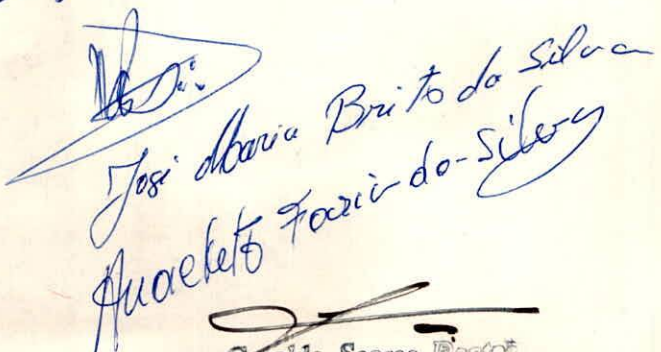 José Maria Brito da Silva
Anacleto Faria da Silva
Soares